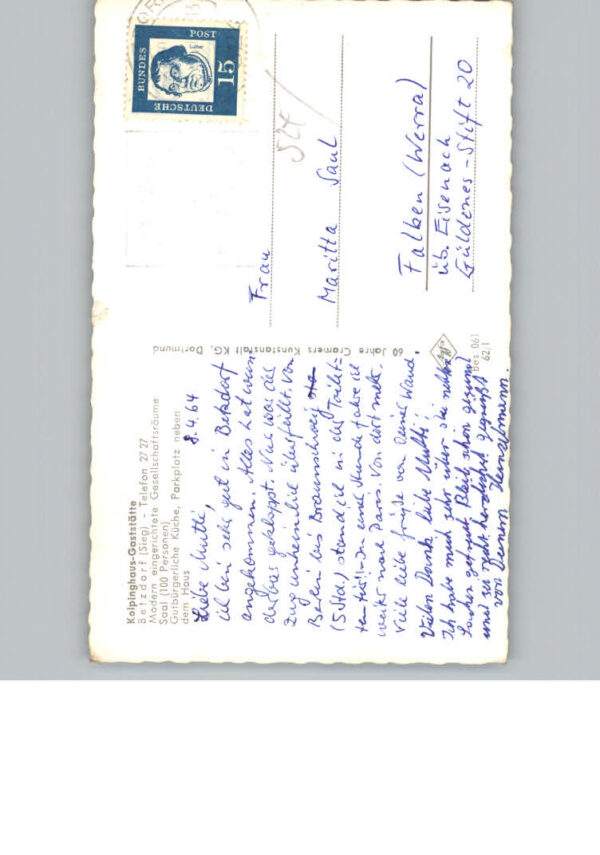 Kolpinghaus-Gaststätte
Betzdorf (Sieg) - Telefon 27 27
Modern eingerichtete Gesellschaftsräume
Saal (100 Personen)
Gutbürgerliche Küche, Parkplatz neben
dem Haus
8.4.64
Liebe Mutti,
ich bin sehr gut in Betzdorf
angekommen. Alles hat wun-
derbar geklappt. Nur war der
Zug unheimlich überfüllt. Von
Berlin bis Braunschweig
(5 Std.) stand ich in der Toilet-
ten In einer Stunde fahre ich
weiter nach Paris. Von dort mehr.
Viele liebe Grüße von Deiner Wand.
Vielen Dank liebe Mutti!
Ich habe mich sehr über die
Sachen gefreut. Bleib schön gesund
und sei recht herzlichst gegrüßt
von Deinem
60 Jahre Cramers Kunstanstalt KG, Dortmund
Bes 061
62/1
DEUTSCHE
BUNDES
POST
15
Luther
524
Frau
Maritta Saul
Falken (Werra)
üb. Eisenach
Güldenes-Stift 20